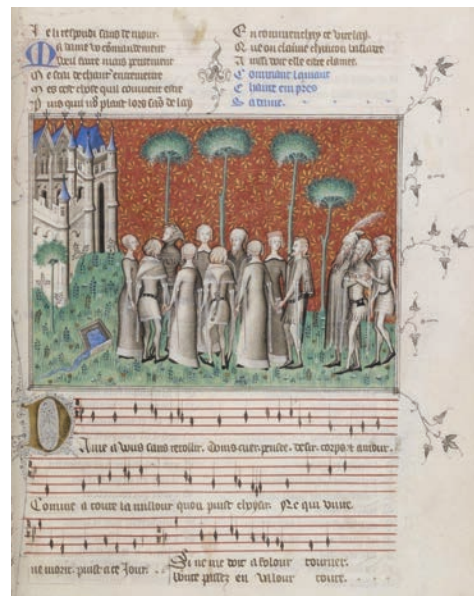 Je li respondi sans demour
Ma dame vo cõmandement
Vueil faire mais petitement
Me scai de chanter entremetre
Mes cest chose quil convient estre
Puis quil võ plaist lors sãs delay
En commencay ce virelay
Que on claime chancon baladee
Ainsi doit elle estre clamee
Comment lamant
chante empres
sa dame
Dame a vous sans retollir. Doins cuer. pensee. desir. corps et amour.
Comme a toute la millour quon puist choysir. Ne qui vivre
ne morir. puist a ce jour.
Si ne me doit a folour tourner.